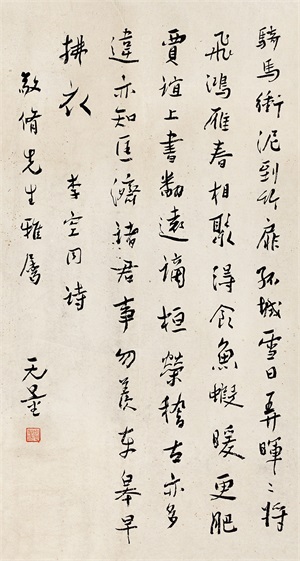 騎馬衝泥到竹扉孤城雪日弄暉〻將
飛鴻雁春相聚得食魚蝦暖更肥
賈誼上書翻遠謫桓榮稽古亦多
違亦知匡濟諸君事勿羨東皋早
拂衣 李空同詩
敬脩先生雅屬 无量